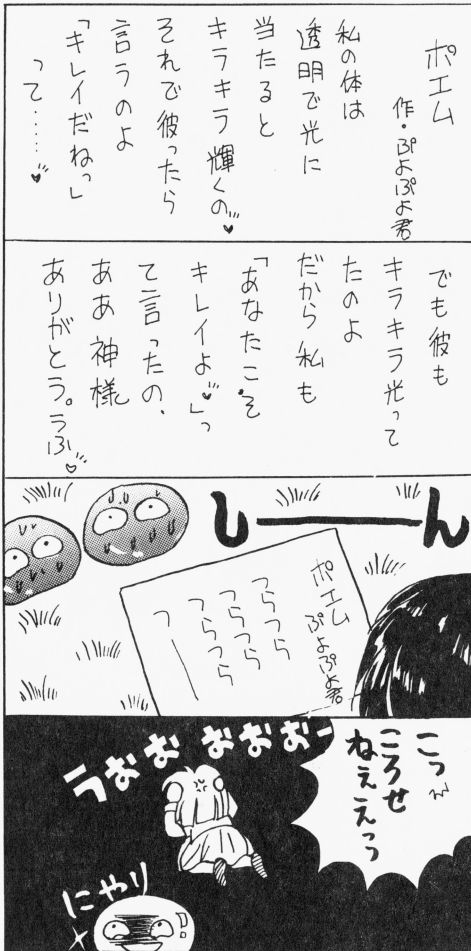 ポエム
作・ぷよぷよ君
私の体は
透明で光に
当たると
キラキラ輝くの♥
それで彼ったら
言うのよ
「キレイだねっ」
って……♥
でも彼も
キラキラ光って
たのよ
だから私も
「あなたこそ
キレイよ♥」っ
て言ったの、
ああ神様
ありがとう。らぶ♥
しーーん
ポエム
ぷよぷよ君
つらつら
つらつら
つらつら
つ――
こっ
ころせ
ねぇえっっ
うおお おおおー
にやり